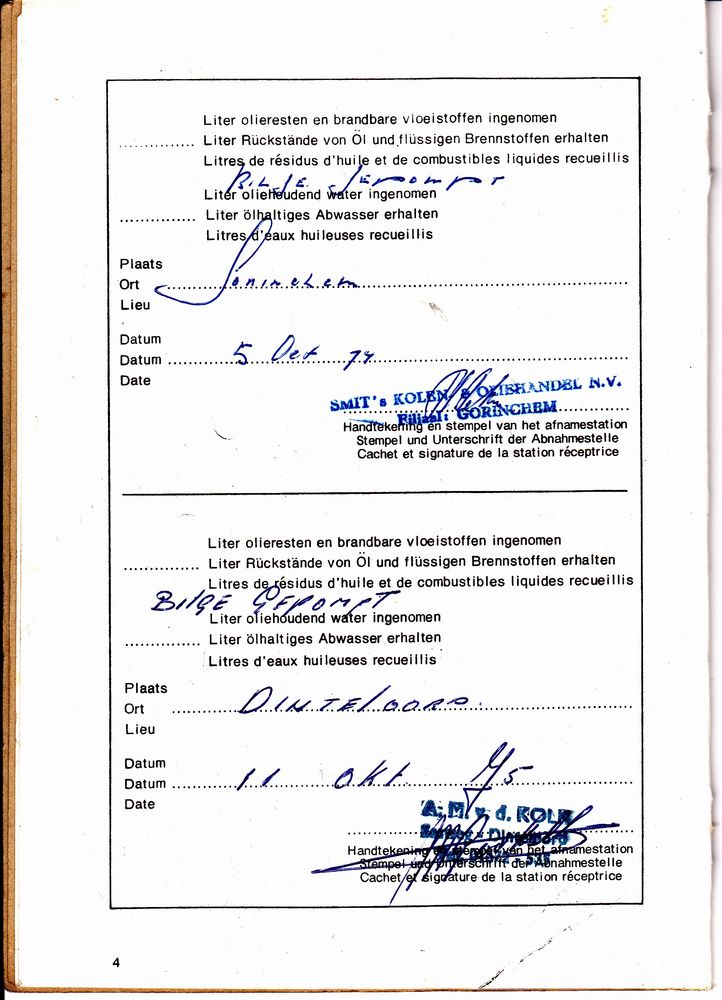 Liter olieresten en brandbare vloeistoffen ingenomen
.............. Liter Rückstände von Öl und flüssigen Brennstoffen erhalten
Litres de résidus d'huile et de combustibles liquides recueillis
Bilge gepompt
Liter oliehoudend water ingenomen
.............. Liter ölhaltiges Abwasser erhalten
Litres d'eaux huileuses recueillis
Plaats
Ort Gorinchem
Lieu
Datum
Datum 5 Oct 74
Date
SMIT's KOLEN & OLIEHANDEL N.V.
Filiaal: GORINCHEM
Handtekening en stempel van het afnamestation
Stempel und Unterschrift der Abnahmestelle
Cachet et signature de la station réceptrice
Liter olieresten en brandbare vloeistoffen ingenomen
.............. Liter Rückstände von Öl und flüssigen Brennstoffen erhalten
Litres de résidus d'huile et de combustibles liquides recueillis
BilGE GEPOMPT
Liter oliehoudend water ingenomen
.............. Liter ölhaltiges Abwasser erhalten
Litres d'eaux huileuses recueillis
Plaats
Ort DINTELOORD
Lieu
Datum
Datum 11 okt 75
Date
A. M. v. d. KOLK
Dinteloord
Handtekening en stempel van het afnamestation
Stempel und Unterschrift der Abnahmestelle
Cachet et signature de la station réceptrice
4